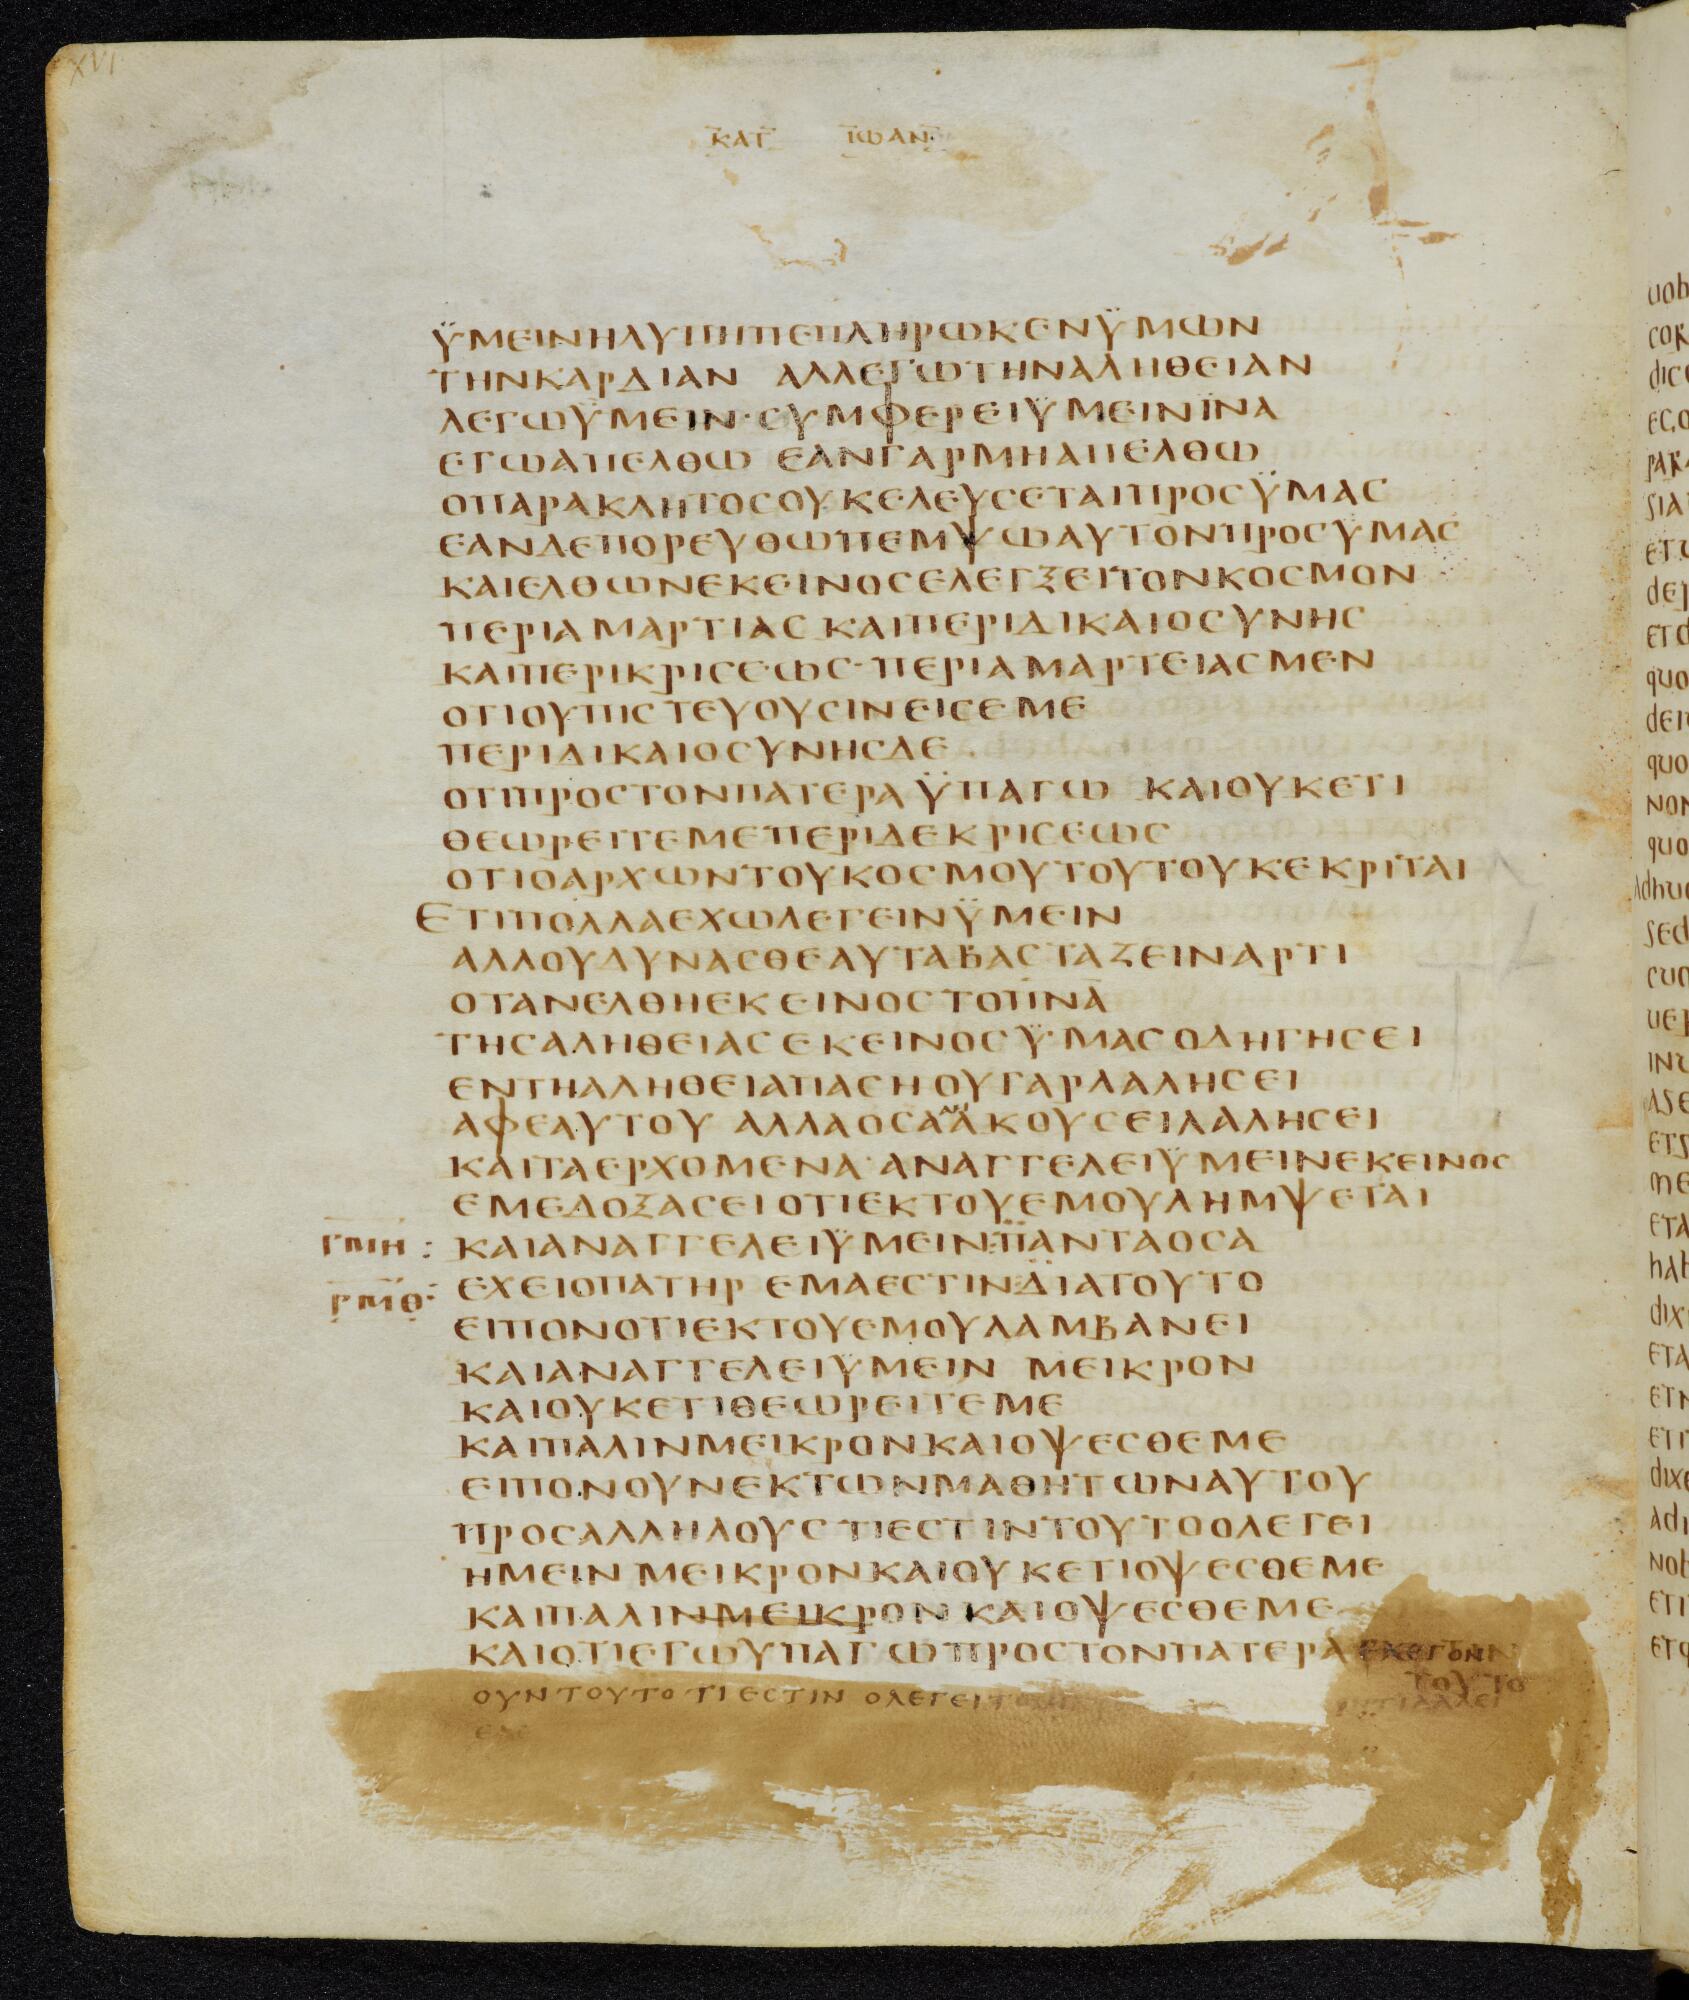 XVI
ΚΑΤ ΙΩΑΝ
ΫΜΕΙΝΗΛΥΠΗΠΕΠΛΗΡΩΚΕΝΫΜΩΝ
ΤΗΝΚΑΡΔΙΑΝ ΑΛΛΕΓΩΤΗΝΑΛΗΘΕΙΑΝ
ΛΕΓΩΫΜΕΙΝ·ΣΥΜΦΕΡΕΙΫΜΕΙΝΪΝΑ
ΕΓΩΑΠΕΛΘΩ ΕΑΝΓΑΡΜΗΑΠΕΛΘΩ
ΟΠΑΡΑΚΛΗΤΟΣΟΥΚΕΛΕΥΣΕΤΑΙΠΡΟΣΫΜΑΣ
ΕΑΝΔΕΠΟΡΕΥΘΩΠΕΜΨΩΑΥΤΟΝΠΡΟΣΥΜΑΣ
ΚΑΙΕΛΘΩΝΕΚΕΙΝΟΣΕΛΕΓΞΕΙΤΟΝΚΟΣΜΟΝ
ΠΕΡΙΑΜΑΡΤΙΑΣ ΚΑΙΠΕΡΙΔΙΚΑΙΟΣΥΝΗΣ
ΚΑΙΠΕΡΙΚΡΙΣΕΩΣ·ΠΕΡΙΑΜΑΡΤΕΙΑΣΜΕΝ
ΟΤΙΟΥΠΙΣΤΕΥΟΥΣΙΝΕΙΣΕΜΕ
ΠΕΡΙΔΙΚΑΙΟΣΥΝΗΣΔΕ
ΟΤΙΠΡΟΣΤΟΝΠΑΤΕΡΑΫΠΑΓΩ ΚΑΙΟΥΚΕΤΙ
ΘΕΩΡΕΙΤΕΜΕΠΕΡΙΔΕΚΡΙΣΕΩΣ
ΟΤΙΟΑΡΧΩΝΤΟΥΚΟΣΜΟΥΤΟΥΤΟΥΚΕΚΡΙΤΑΙ
ΕΤΙΠΟΛΛΑΕΧΩΛΕΓΕΙΝΫΜΕΙΝ
ΑΛΛΟΥΔΥΝΑΣΘΕΑΥΤΑΒΑΣΤΑΖΕΙΝΑΡΤΙ
ΟΤΑΝΕΛΘΗΕΚΕΙΝΟΣΤΟΠΝΑ
ΤΗΣΑΛΗΘΕΙΑΣΕΚΕΙΝΟΣΫΜΑΣΟΔΗΓΗΣΕΙ
ΕΝΤΗΑΛΗΘΕΙΑΠΑΣΗΟΥΓΑΡΛΑΛΗΣΕΙ
ΑΦΕΑΥΤΟΥ ΑΛΛΑΟΣΑΑΚΟΥΣΕΙΛΑΛΗΣΕΙ
ΚΑΙΤΑΕΡΧΟΜΕΝΑ·ΑΝΑΓΓΕΛΕΙΫΜΕΙΝΕΚΕΙΝΟΣ
ΕΜΕΔΟΞΑΣΕΙΟΤΙΕΚΤΟΥΕΜΟΥΛΗΜΨΕΤΑΙ
ΓΜΗ : ΚΑΙΑΝΑΓΓΕΛΕΙΫΜΕΙΝ:ΠΑΝΤΑΟΣΑ
ΡΜΘ: ΕΧΕΙΟΠΑΤΗΡ ΕΜΑΕΣΤΙΝ:ΔΙΑΤΟΥΤΟ
ΕΙΠΟΝΟΤΙΕΚΤΟΥΕΜΟΥΛΑΜΒΑΝΕΙ
ΚΑΙΑΝΑΓΓΕΛΕΙΫΜΕΙΝ ΜΕΙΚΡΟΝ
ΚΑΙΟΥΚΕΤΙΘΕΩΡΕΙΤΕΜΕ
ΚΑΙΠΑΛΙΝΜΕΙΚΡΟΝΚΑΙΟΨΕΣΘΕΜΕ
ΕΙΠΟΝΟΥΝΕΚΤΩΝΜΑΘΗΤΩΝΑΥΤΟΥ
ΠΡΟΣΑΛΛΗΛΟΥΣ ΤΙΕΣΤΙΝΤΟΥΤΟΟΛΕΓΕΙ
ΗΜΕΙΝ ΜΕΙΚΡΟΝΚΑΙΟΥΚΕΤΙΟΨΕΣΘΕΜΕ
ΚΑΙΠΑΛΙΝΜΕΙΚΡΟΝ ΚΑΙΟΨΕΣΘΕΜΕ
ΚΑΙΟΤΙΕΓΩΥΠΑΓΩΠΡΟΣΤΟΝΠΑΤΕΡΑΕΛΕΓΟΝ
ΤΟΥΤΟ
ΟΥΝΤΟΥΤΟΤΙΕΣΤΙΝ ΟΛΕΓΕΙ